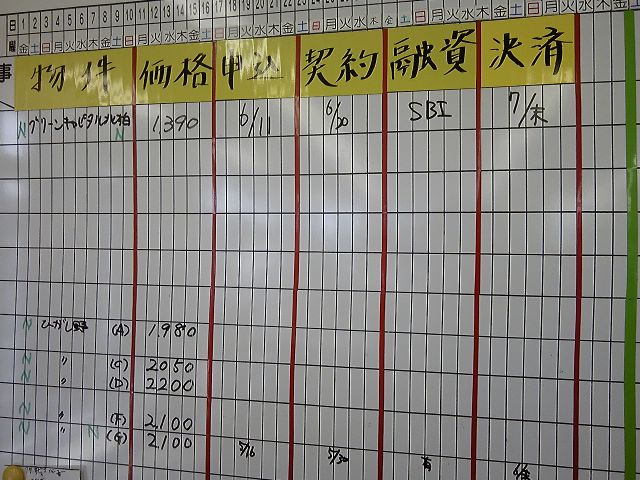 日 1 2 3 4 5 6 7 8 9 10 11 12 13 14 15 16 17 18 19 20 21 22 23 24
曜 金 土 日 月 火 水 木 金 土 日 月 火 水 木 金 土 日 月 火 水 木 金 土 日 月 火 水 木 金 土 日 月 火 水 木 金 土 日 月 火 水 木 金 土 日 月 火 水
事 物件 価格 申込 契約 融資 決済
N グリーンキャピタル北柏 N 1,390 6/11 6/20 SBI 7/末
N ひがし野 (A) 1.980
N 〃 (C) 2050
N 〃 (D) 2200
N 〃 (F) 2.100
N 〃 N (G) 2.100 5/16 5/30 有